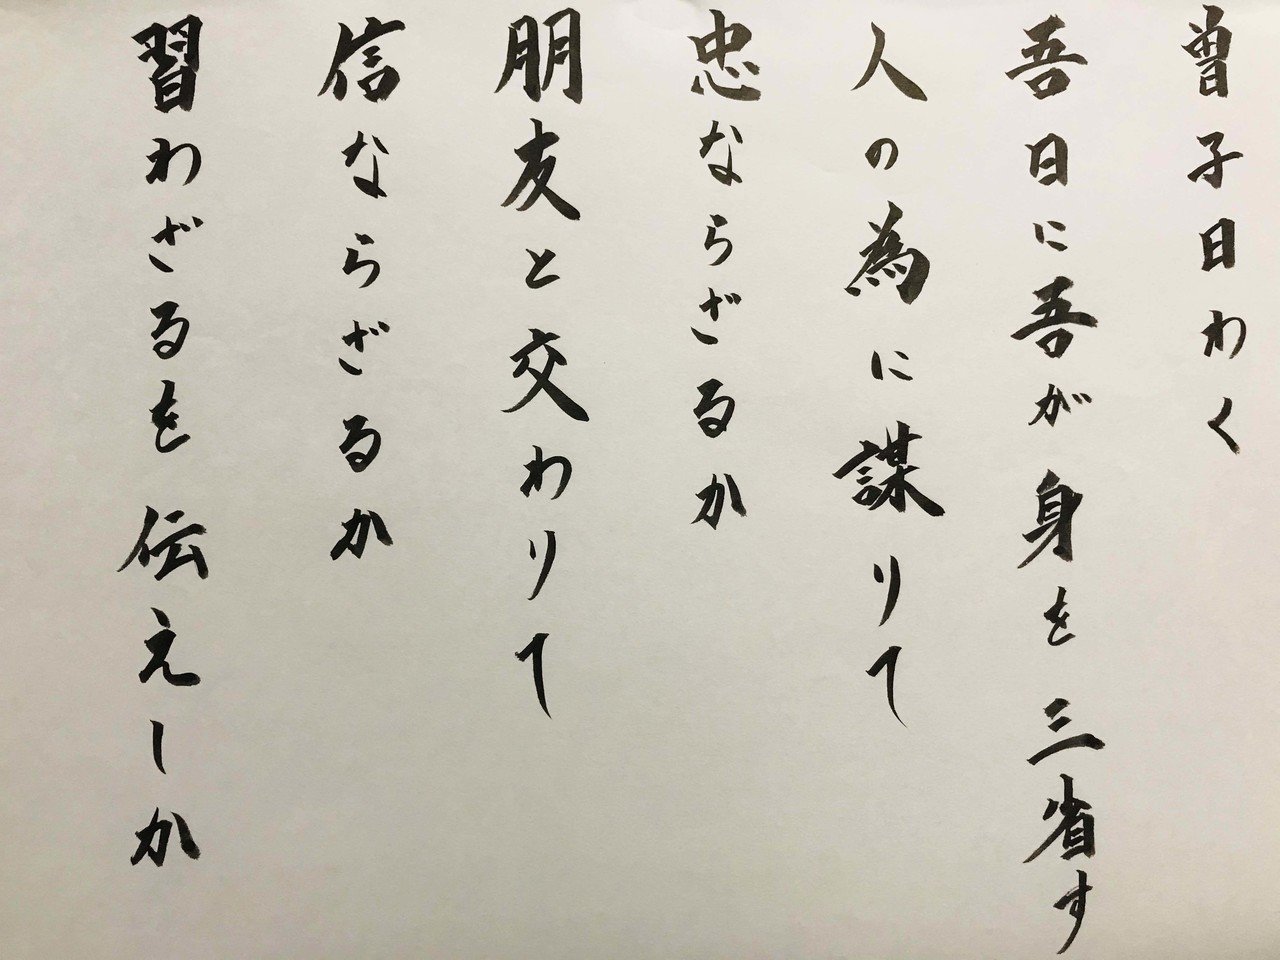 曽子曰わく
吾日に吾が身を三省す
人の為に謀りて
忠ならざるか
朋友と交わりて
信ならざるか
習わざるを伝えしか